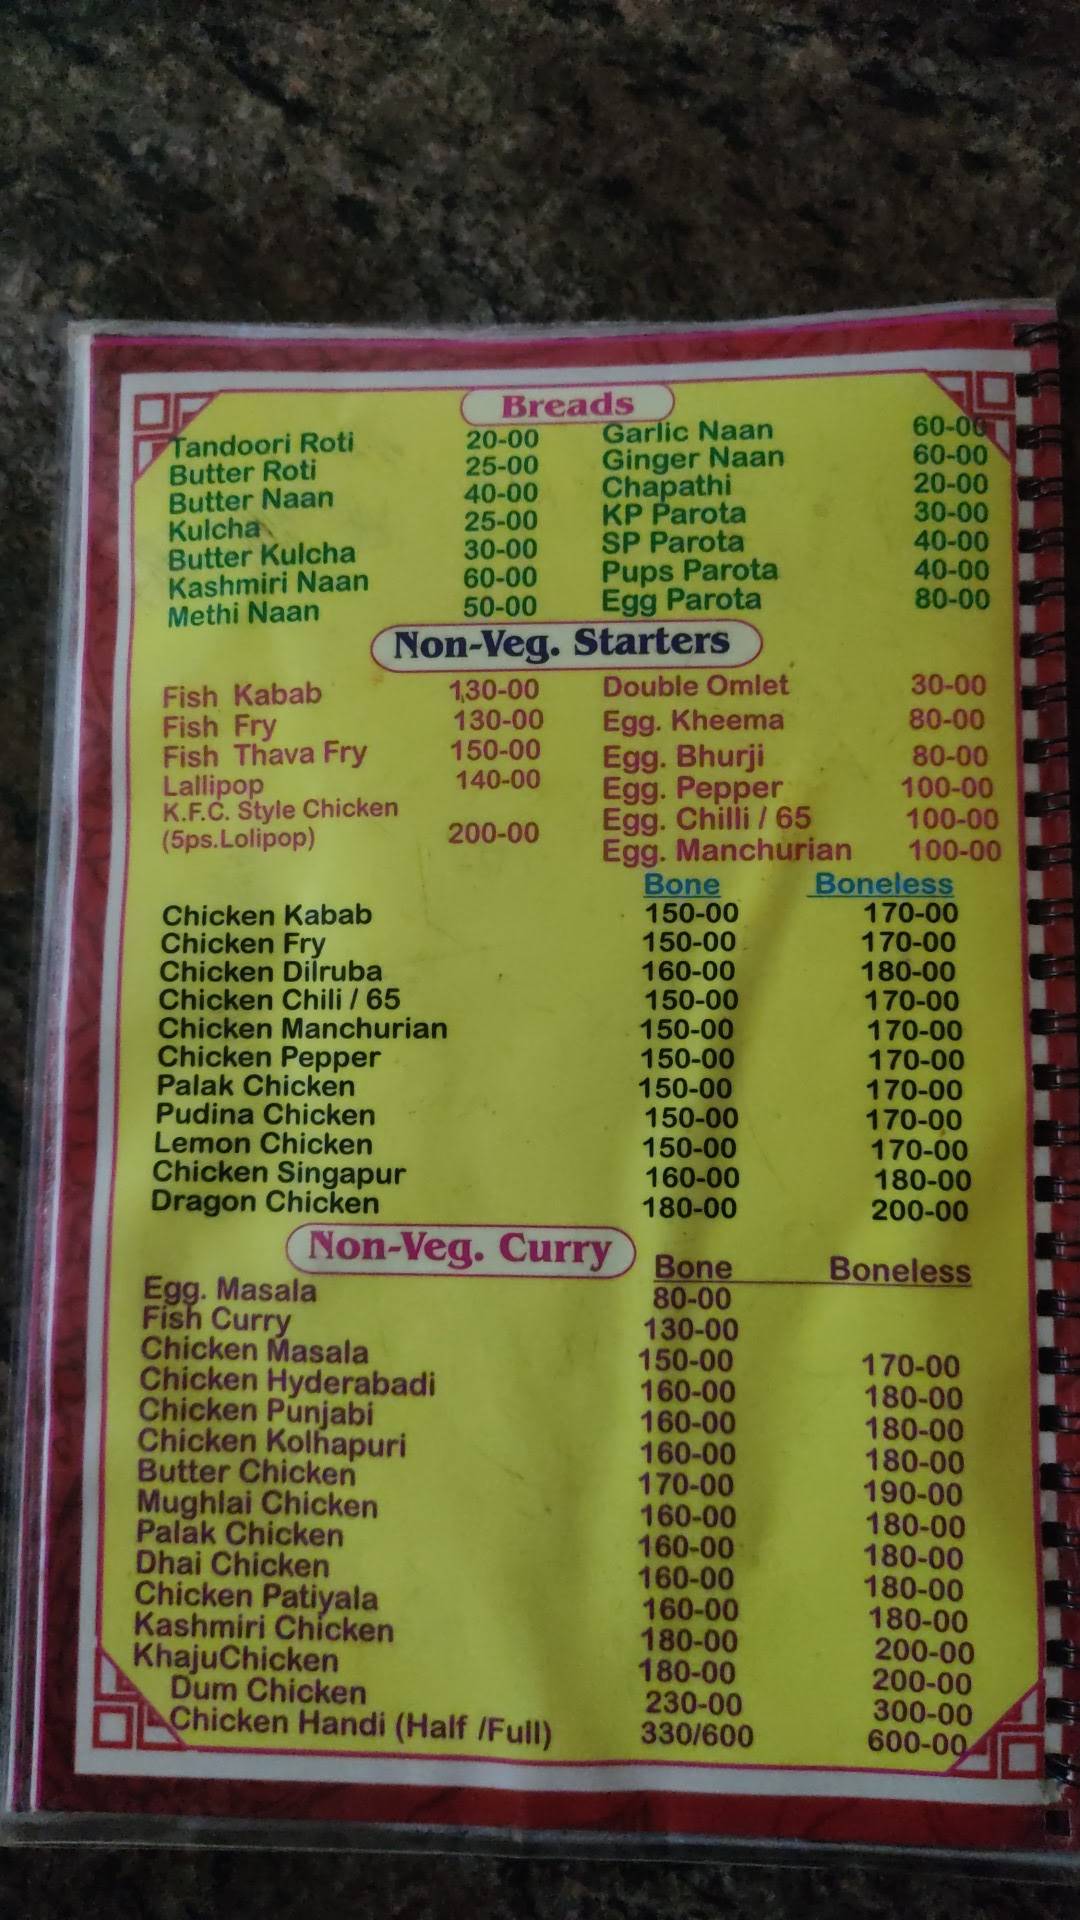 Breads
Tandoori Roti 20-00 Garlic Naan 60-00
Butter Roti 25-00 Ginger Naan 60-00
Butter Naan 40-00 Chapathi 20-00
Kulcha 25-00 KP Parota 30-00
Butter Kulcha 30-00 SP Parota 40-00
Kashmiri Naan 60-00 Pups Parota 40-00
Methi Naan 50-00 Egg Parota 80-00
Non-Veg. Starters
Fish Kabab 130-00 Double Omlet 30-00
Fish Fry 130-00 Egg. Kheema 80-00
Fish Thava Fry 150-00 Egg. Bhurji 80-00
Lallipop 140-00 Egg. Pepper 100-00
K.F.C. Style Chicken Egg. Chilli / 65 100-00
(5ps.Lolipop) 200-00 Egg. Manchurian 100-00
Bone Boneless
Chicken Kabab 150-00 170-00
Chicken Fry 150-00 170-00
Chicken Dilruba 160-00 180-00
Chicken Chili / 65 150-00 170-00
Chicken Manchurian 150-00 170-00
Chicken Pepper 150-00 170-00
Palak Chicken 150-00 170-00
Pudina Chicken 150-00 170-00
Lemon Chicken 150-00 170-00
Chicken Singapur 160-00 180-00
Dragon Chicken 180-00 200-00
Non-Veg. Curry Bone Boneless
Egg. Masala 80-00
Fish Curry 130-00
Chicken Masala 150-00 170-00
Chicken Hyderabadi 160-00 180-00
Chicken Punjabi 160-00 180-00
Chicken Kolhapuri 160-00 180-00
Butter Chicken 170-00 190-00
Mughlai Chicken 160-00 180-00
Palak Chicken 160-00 180-00
Dhai Chicken 160-00 180-00
Chicken Patiyala 160-00 180-00
Kashmiri Chicken 180-00 200-00
KhajuChicken 180-00 200-00
Dum Chicken 230-00 300-00
Chicken Handi (Half /Full) 330/600 600-00